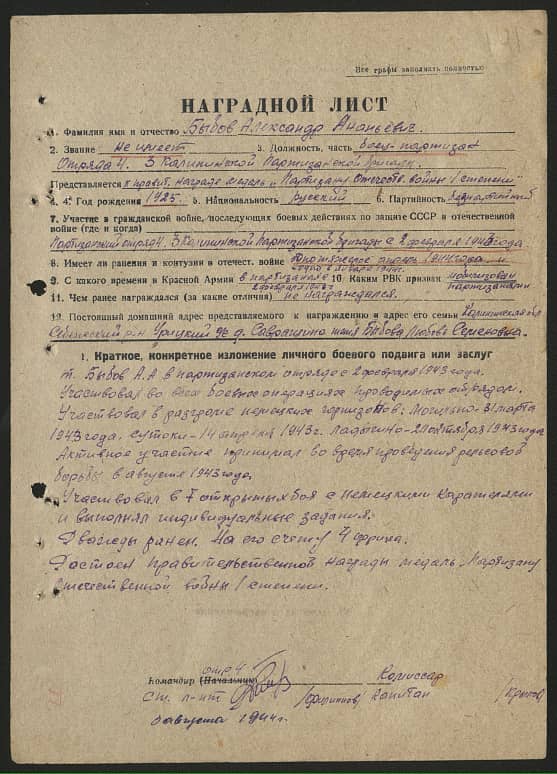 Все графы заполнять полностью
НАГРАДНОЙ ЛИСТ
1. Фамилия имя и отчество Быбов Александр Ананьевич.
2. Звание не имеет 3. Должность, часть боец-партизан
Отряда 4. 3 Калининской Партизанской бригады.
Представляется к правит. награде медаль „Партизану Отечеств. войны 1 степени"
4. Год рождения 1925. 5. Национальность русский 6. Партийность беспартийный
7. Участие в гражданской войне, последующих боевых действиях по защите СССР и отечественной
войне (где и когда)
Партизанский отряд 4. 3 Калининской Партизанской бригады с 2 февраля 1943 года
8. Имеет ли ранения и контузии в отечест. войне 1944 года. и
в января 1944г.
9. С какого времени в Красной Армии в партизанах с 10. Каким РВК призван мобилизован
2 февраля 1943г. партизанами
11. Чем ранее награждался (за какие отличия) не награждался.
12. Постоянный домашний адрес представляемого к награждению и адрес его семьи Калининская обл
Себежский р-н Урицкий с/с д. Быбова Любовь Семеновна.
1. Краткое, конкретное изложение личного боевого подвига или заслуг
т. Быбов А.А в партизанском отряде с 2 февраля 1943 года.
Участвовал во всех боевых операциях проводимых отрядом.
Участвовал в разгроме немецких гарнизонов: - 31 марта
1943 года. Сутоки - 14 апреля 1943г. Ладыгино - 21 октября 1943 года
Активное участие принимал во время проведения рельсовой
борьбы в августе 1943 года.
Участвовал в 7 открытых боя с немецкими карателями
и выполнял индивидуальные задания.
Дважды ранен. На его счету 4 фрица.
Достоен Правительственной награды медаль. Партизану
Отечественной войны 1 степени.
отр 4
Командир (Начальник) Комиссар
ст. л-нт /Филиппов/ капитан /Крылов/
августа 1944г.